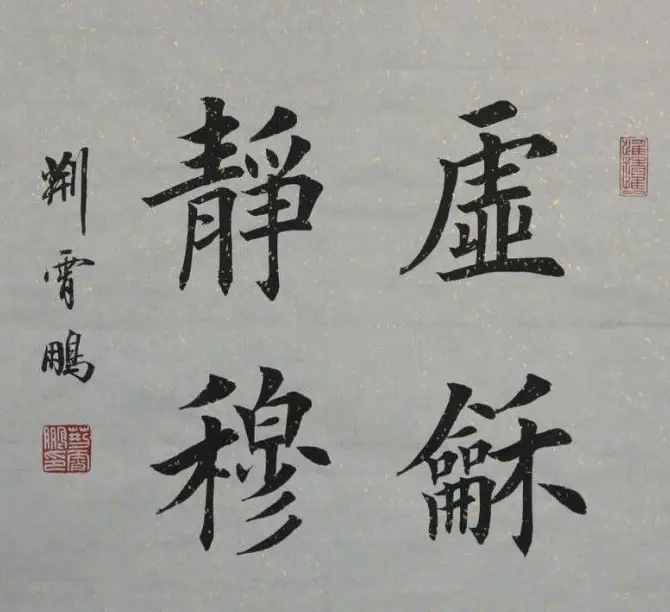 虛龢
靜穆
荊霄鵬